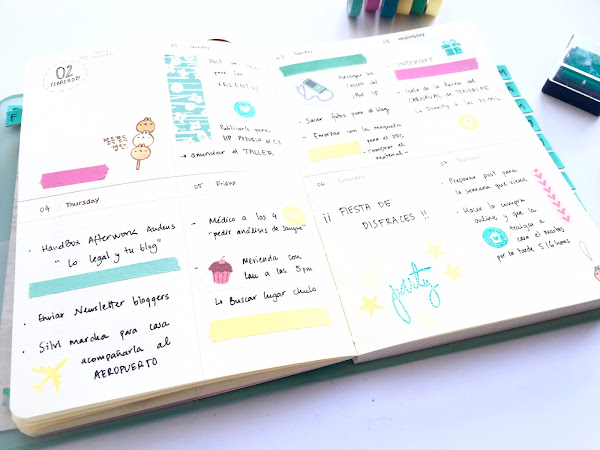 02
FEBRERO
01 Monday
para
VALENTIN
Publicarlo para
→ anunciar el TALLER
02 Tuesday
Recoger los
- Sacar fotos para el blog
- Empezar con las
- Comprar el
material -
03 Wednesday
PINTEREST
- Gala de la Reina del
CARNAVAL DE TENERIFE
04 Thursday
· HandBox Afterwork Audens
"lo legal y tu blog"
· Enviar Newsletter bloggers
· Silvi marcha para casa
acompañarla al
AEROPUERTO
05 Friday
· Médico a las 9
"pedir análisis de Sangre"
· Merienda con
Lau a las 5pm
↳ Buscar lugar chulo
06 Saturday
¡¡ FIESTA DE
DISFRACES !!
party
07 Sunday
· Preparar post para
la semana que viene
· Hacer la compra
online, y que la
traigan a
casa el martes
por la tarde 5/6 horas
F